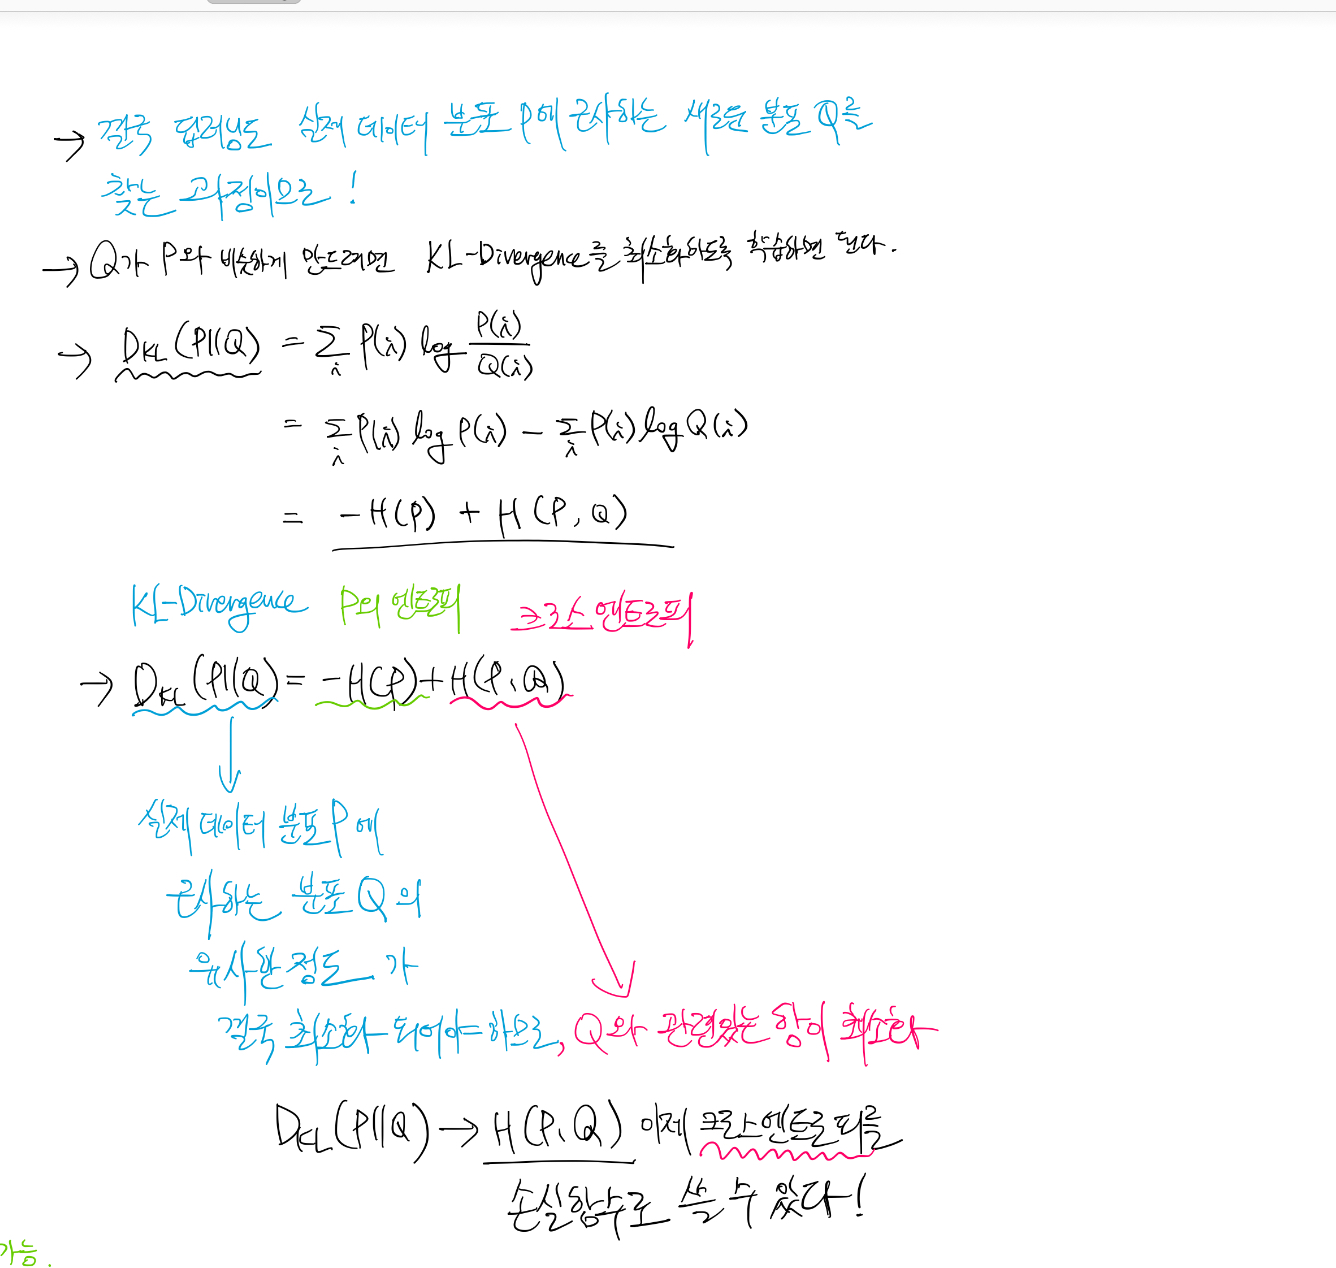 → 결국 딥러닝도 실제 데이터 분포 P에 근사하는 새로운 분포 Q를
찾는 과정이므로!
→ Q가 P와 비슷하게 만드려면 KL-Divergence를 최소화하도록 학습하면 된다.
→ D_KL(P||Q) = Σ_i P(i) log P(i)/Q(i)
= Σ_i P(i) log P(i) - Σ_i P(i) log Q(i)
= -H(P) + H(P, Q)
KL-Divergence P의 엔트로피 크로스 엔트로피
→ D_KL(P||Q) = -H(P) + H(P, Q)
실제 데이터 분포 P에
근사하는 분포 Q의
유사한 정도가
결국 최소화 되어야 하므로, Q와 관련있는 항이 최소화
D_KL(P||Q) → H(P, Q) 이제 크로스엔트로피를
손실함수로 쓸 수 있다!
가능.